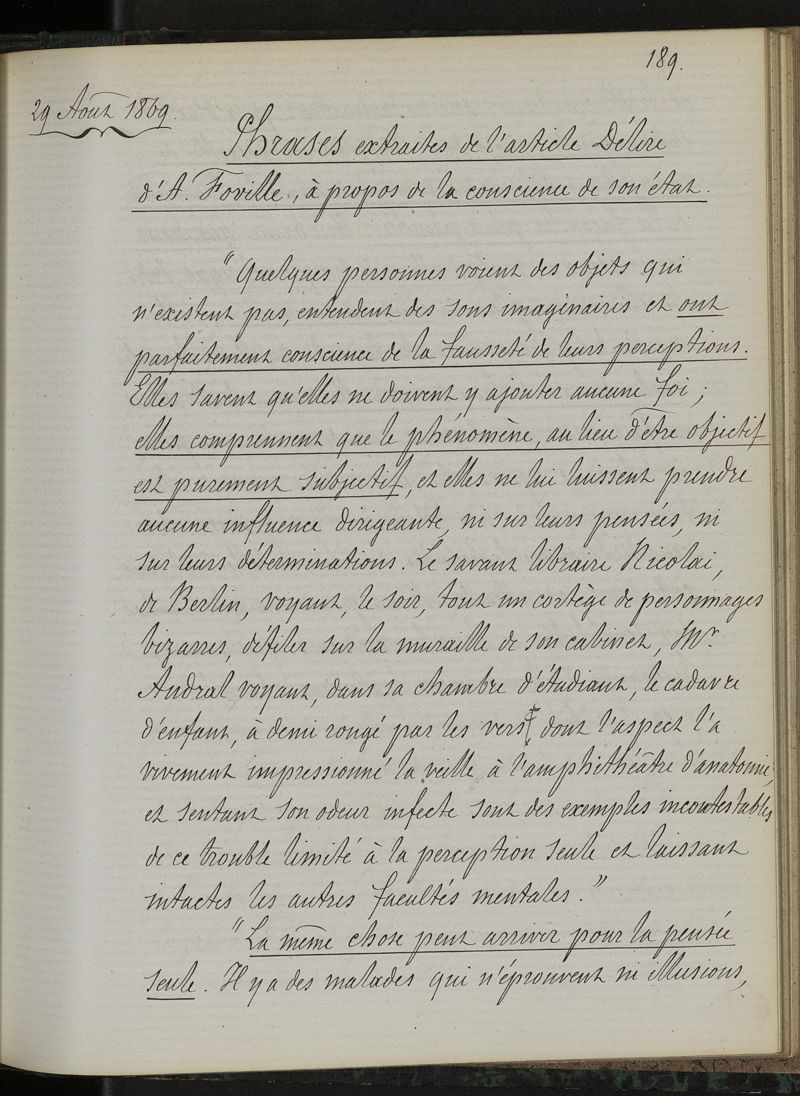 189.
29 Août 1869.
Phrases extraites de l'article Délire
d'A. Foville, à propos de la conscience de son état.
"Quelques personnes voient des objets qui
n'existent pas, entendent des sons imaginaires et ont
parfaitement conscience de la fausseté de leurs perceptions.
Elles savent qu'elles ne doivent y ajouter aucune foi ;
elles comprennent que le phénomène, au lieu d'être objectif
est purement subjectif, et elles ne lui laissent prendre
aucune influence dirigeante, ni sur leurs pensées, ni
sur leurs déterminations. Le savant libraire Nicolai,
de Berlin, voyant, le soir, tout un cortège de personnages
bizarres, défiler sur la muraille de son cabinet, Mr.
Andral voyant, dans sa chambre d'étudiant, le cadavre
d'enfant, à demi rongé par les vers, dont l'aspect l'a
vivement impressionné la veille à l'amphithéâtre d'anatomie,
et sentant son odeur infecte sont des exemples incontestables
de ce trouble limité à la perception seule et laissant
intactes les autres facultés mentales."
"La même chose peut arriver pour la pensée
seule. Il y a des malades qui n'éprouvent ni illusions,